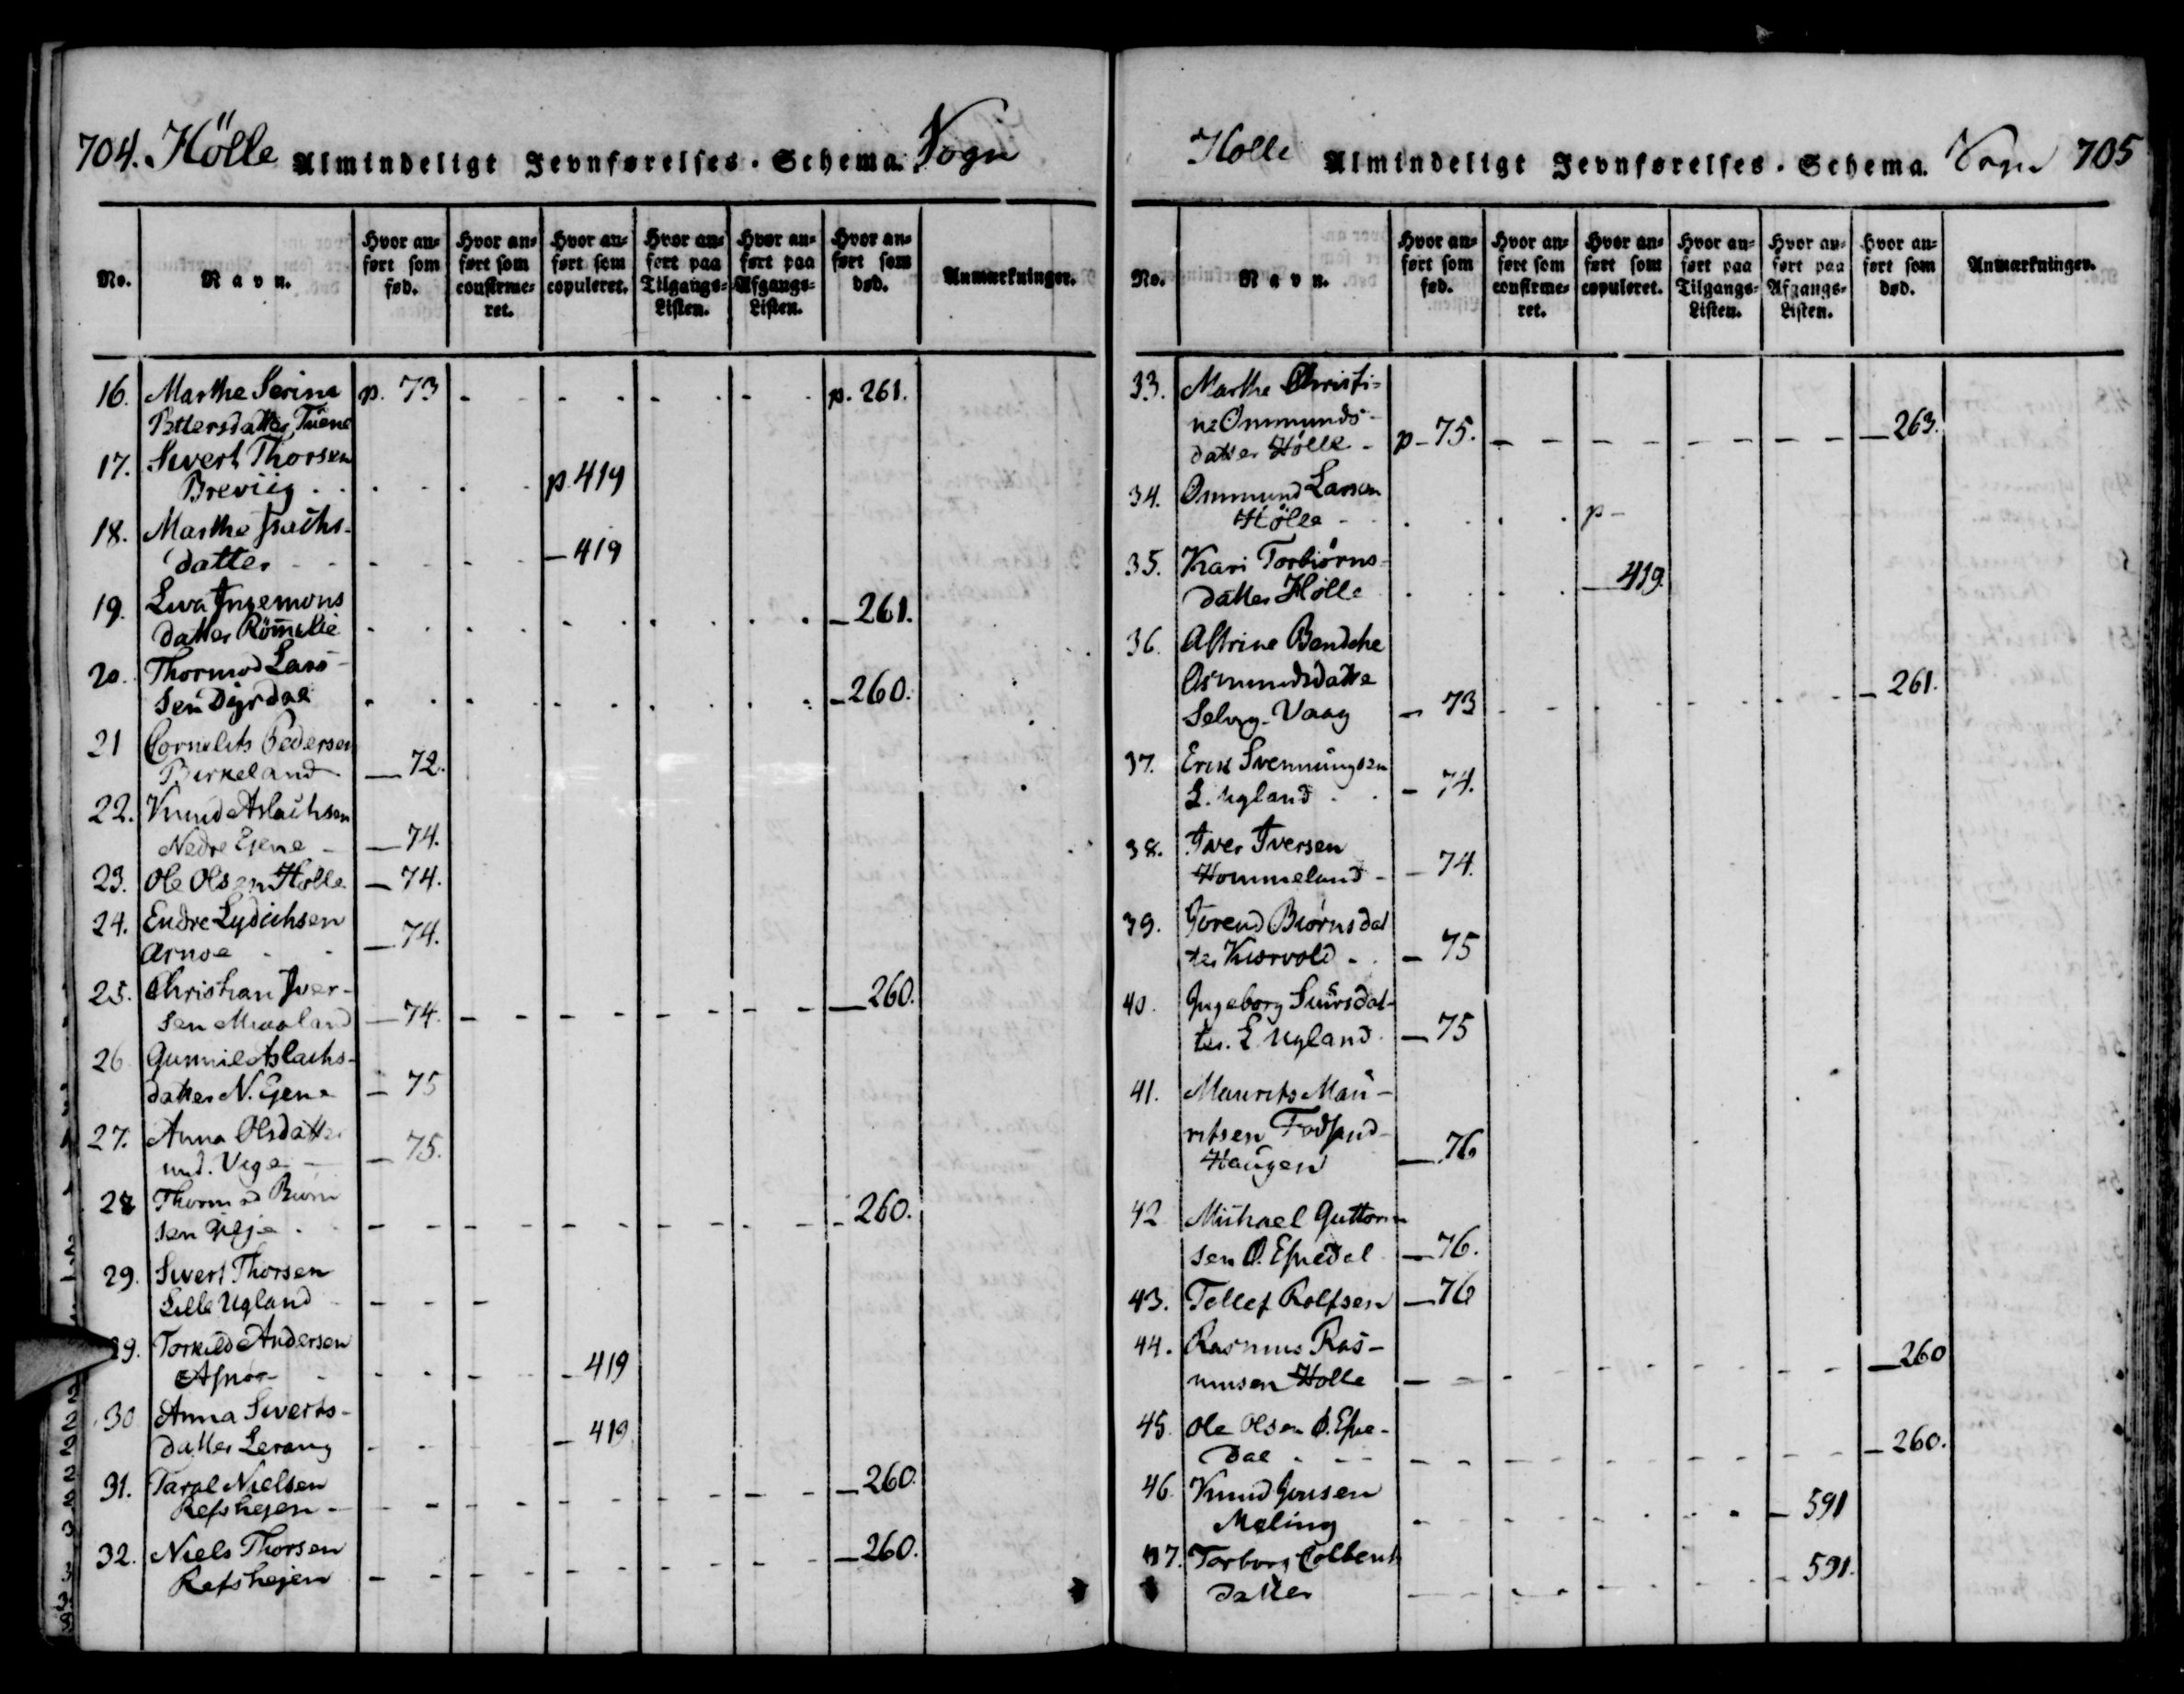 704. Hölle Almindeligt Jevnførelses-Schema. Sogn
No. Navn. Hvor anført som fød. Hvor anført som confirmeret. Hvor anført som copuleret. Hvor anført paa Tilgangs-Listen. Hvor anført paa Afgangs-Listen. Hvor anført som død. Anmærkninger.
16. Marthe Serine p. 73 - - - - - - - p. 261.
Pettersdatter Tuene
17. Sivert Thorsen
Breviig . . . . . . p. 419
18. Marthe Isachs-
datter - - - - - - — 419
19. Siva Ingemons
datter Römelie . . . . . . — 261.
20. Thormod Lars-
sen Dyrdal . . . . . . — 260.
21 Cornelits Pedersen
Birkeland — 72.
22. Knud Aslachsen
Nedre Ejene — — 74.
23. Ole Olsen Hölle — 74.
24. Endre Lydichsen
Arnøe - - — 74.
25. Christian Iver-
sen Meaaland — 74. - - - - - - - — 260.
26 Gunnild Aslachs-
datter N. Ejene — 75
27. Anna Olsdatter
und. Vige — — 75.
28 Thormod Biörn
sen Gilje . - - - - - - - - - 260.
29. Sivert Thorsen
Lille Ugland - - - -
29. Torkild Andersen
- - - - - 419
30 Anna Siverts-
datter Lerang - - — 419
31. Taral Nielsen
Refshejen - - - - - - - - - — 260.
32. Niels Thorsen
Refshejen - - - - - - - - — 260.
Hölle Almindeligt Jevnførelses-Schema. Sogn 705
No. Navn. Hvor anført som fød. Hvor anført som confirmeret. Hvor anført som copuleret. Hvor anført paa Tilgangs-Listen. Hvor anført paa Afgangs-Listen. Hvor anført som død. Anmærkninger.
33. Marthe Christi-
ne Ommunds-
datter Hölle - p - 75. - - - - - - - - — 263.
34. Ommund Larsen
Hölle - - . . . . p -
35. Kari Torbiörns-
datter Hölle . . . . — 419.
36. Alstrine Bendche
Asmundsdatter
Selvig-Vaag — 73 - - - - - - - — 261.
37. Erik Svenningsen
L. Ugland . . - 74.
38. Iver Iversen
Hommeland - - 74.
39. Gorend Biörnsdat
ter Kiørvold - . — 75
40. Ingeborg Siursdat-
ter. L. Ugland. — 75
41. Maurits Mau-
ritsen Fodsand-
Haugen — 76
42 Michael Guttorm
sen Ø. Espedal — 76.
43. Tellef Rolfsen — 76
44. Rasmus Ras-
musen Holle — - - - - - - - — 260
45. Ole Olsen Ø. Espe-
dal . - - - - - - - - - — 260.
46. Knud Jonsen
Mæling - - - - - . - - — 591
47. Torborg Colbens
datter - - - - - - - — 591.